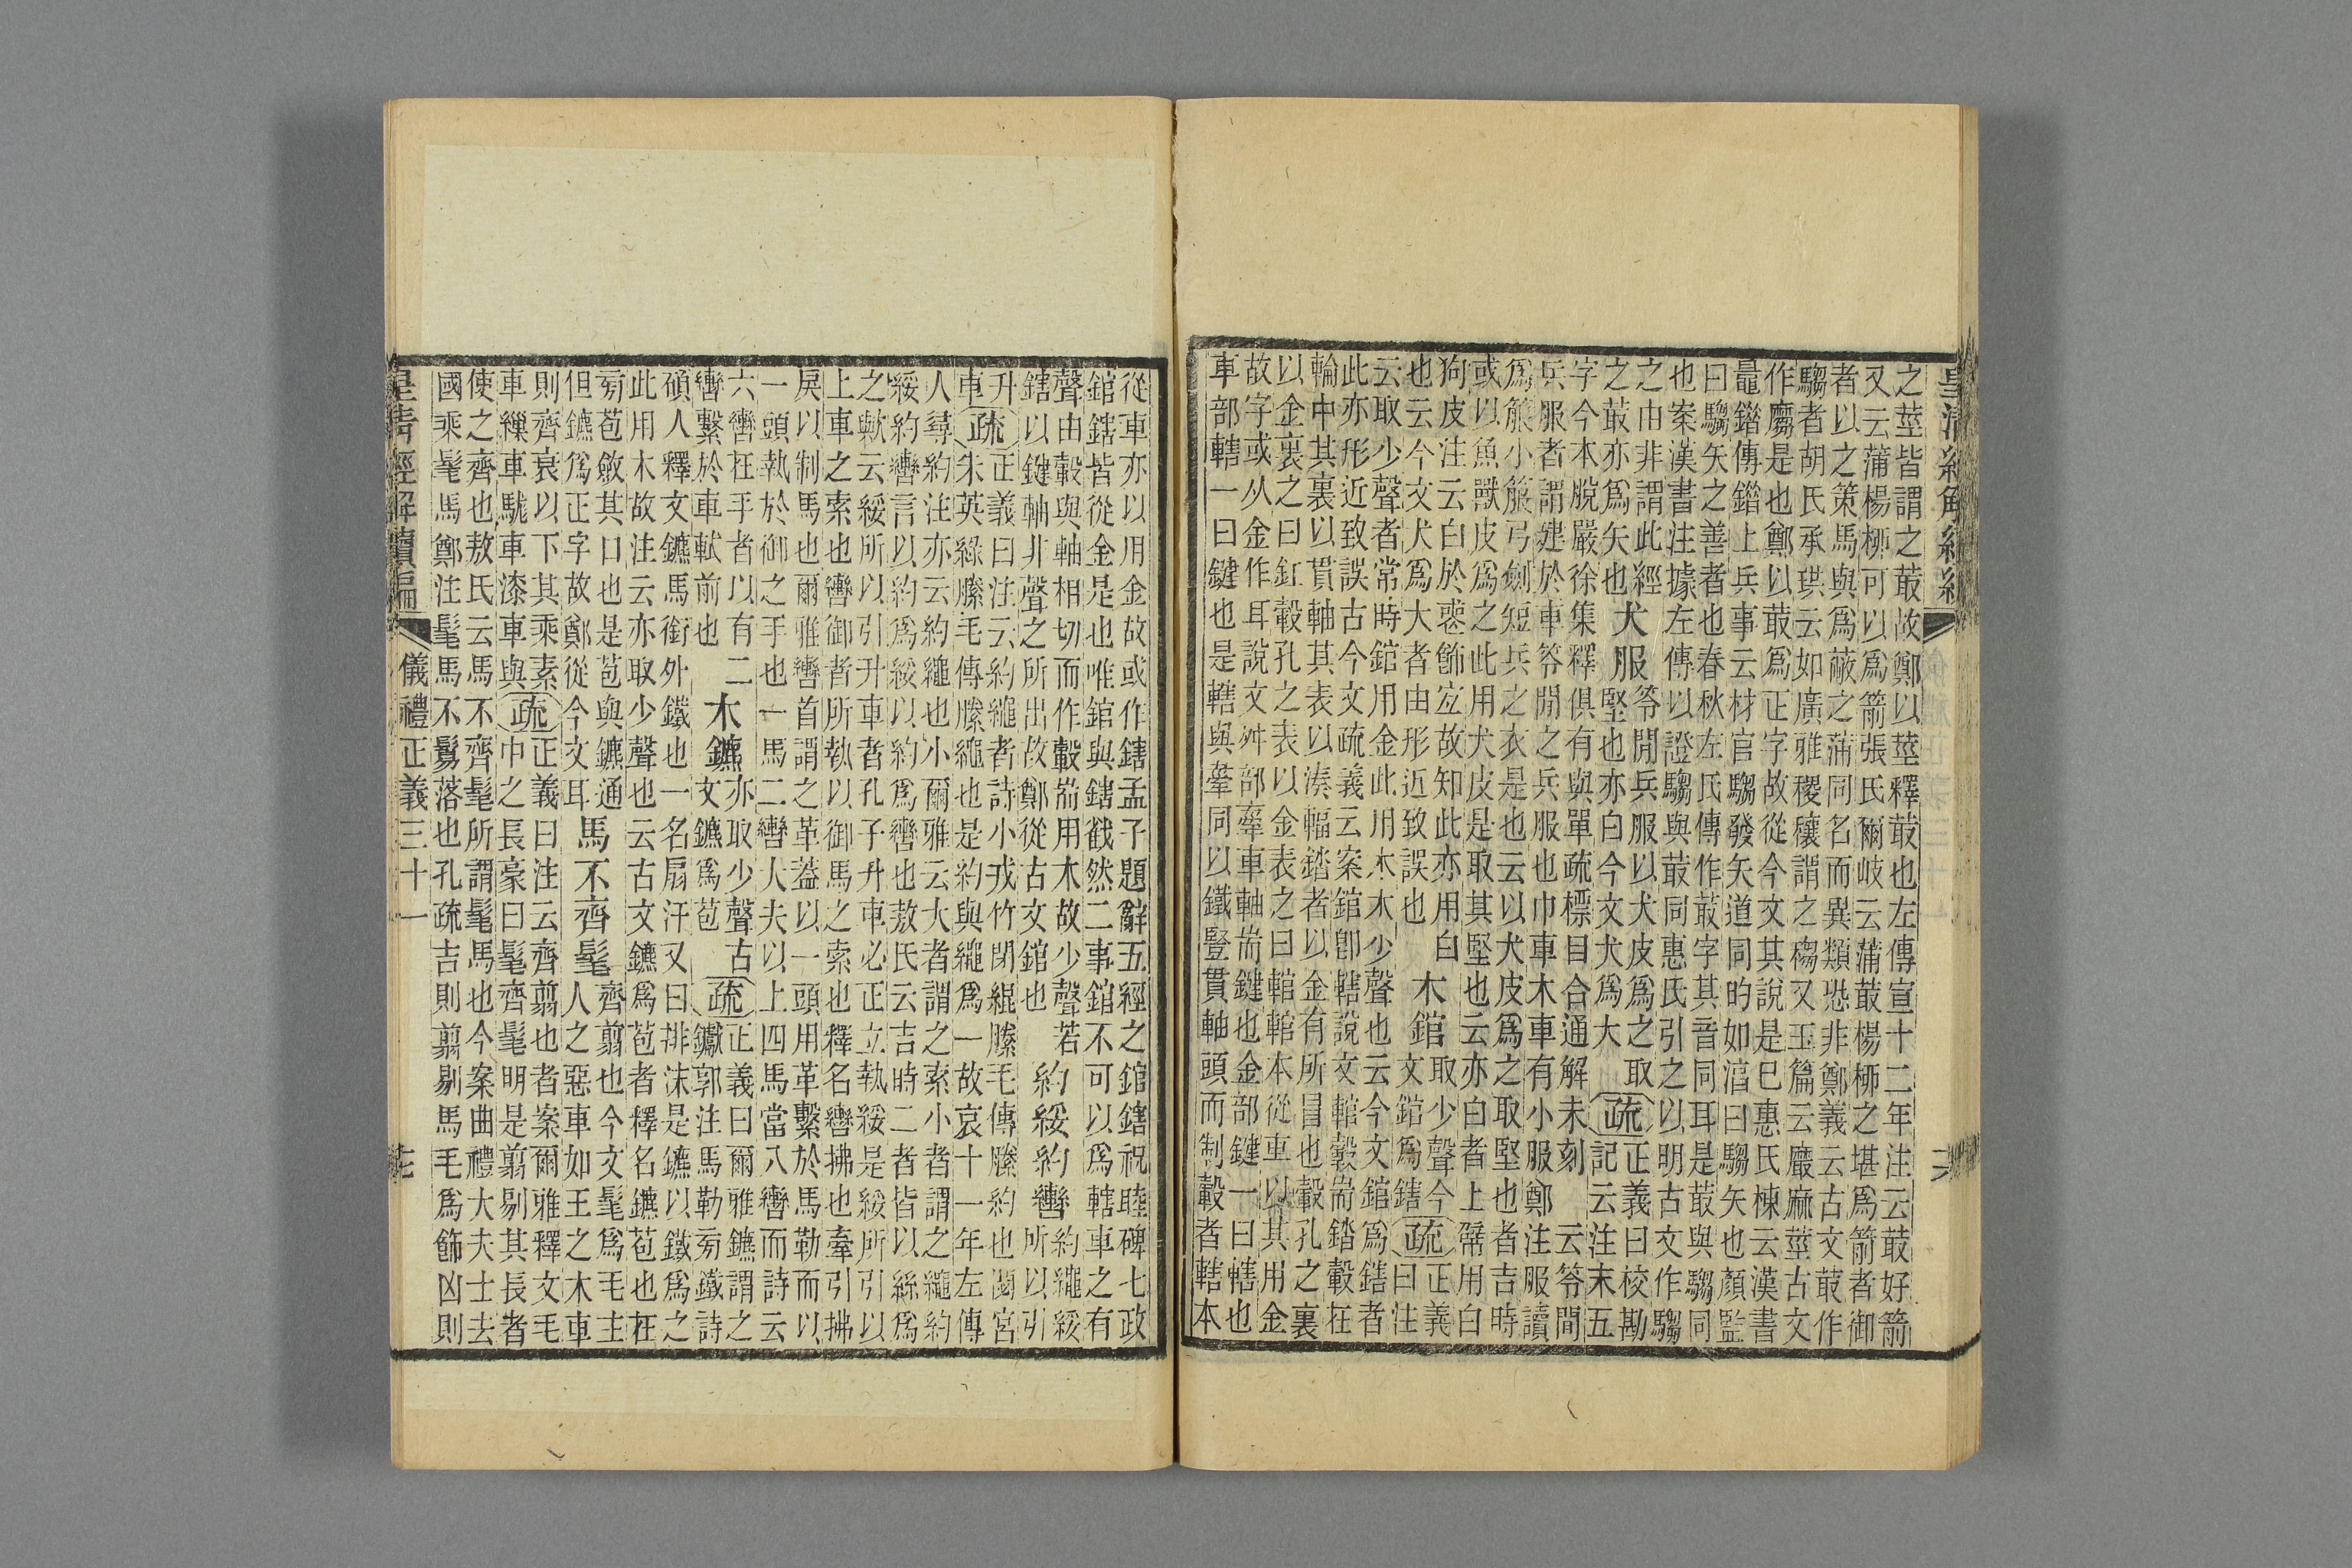 皇清經解續編
之莖皆謂之菆故鄭以莖釋菆也左傳宣十二年注云菆好箭
又云蒲楊桺可以爲箭張氏爾岐云蒲菆楊桺之堪爲箭者御
者以之策馬與爲蔽之蒲同名而異類恐非鄭義云古文菆作
騶者胡氏承珙云如廣雅稷穰謂之䅳又玉篇云黀麻莖古文
作黀是也鄭以菆爲正字故從今文其說是巳惠氏棟云漢書
鼂錯傳錯上兵事云材官騶發矢道同的如淳曰騶矢也顏監
曰騶矢之善者也春秋左氏傳作菆字其音同耳是菆與騶同
也案漢書注據左傳以證騶與菆同惠氏引之以明古文作騶
之由非謂此經
之菆亦爲矢也
犬服
笭閒兵服以犬皮爲之取
堅也亦白今文犬爲大
疏
正義曰校勘
記云注末五
字今本脫嚴徐集釋俱有與單疏標目合通解未刻 云笭間
兵服者謂建於車笭閒之兵服也巾車木車有小服鄭注服讀
爲箙小箙弓劍短兵之衣是也云以犬皮爲之取堅也者吉時
或以魚獸皮爲之此用犬皮是取其堅也云亦白者上幦用白
狗皮注云白於喪飾宜故知此亦用白
也云今文犬爲大者由形近致誤也
木錧
取少聲今
文錧爲鎋
疏
正義
曰注
云取少聲者常時錧用金此用木木少聲也云今文錧爲鎋者
此亦形近致誤古今文疏義云案錧卽轄說文輨轂耑錔轂在
輪中其裏以貫軸其表以湊輻錔者以金有所冒也轂孔之裏
以金裏之曰釭轂孔之表以金表之曰輨輨本從車以其用金
故字或从金作耳說文舛部舝車軸耑鍵也金部鍵一曰轄也
車部轄一曰鍵也是轄與舝同以鐵豎貫軸頭而制轂者轄本
從車亦以用金故或作鎋孟子題辭五經之錧鎋祝睦碑七政
錧鎋皆從金是也唯錧與鎋截然二事錧不可以爲轄車之有
聲由轂與軸相切而作轂耑用木故少聲若
鎋以鍵軸非聲之所出故鄭從古文錧也
約綏約轡
約繩綏
所以引
升
車
疏
正義曰注云約繩者詩小戎竹閉緄縢毛傳縢約也閟宮
朱英綠縢毛傳縢繩也是約與繩爲一故哀十一年左傳
人尋約注亦云約繩也小爾雅云大者謂之索小者謂之繩約
綏約轡言以約爲綏以約爲轡也敖氏云吉時二者皆以絲爲
之歟云綏所以引升車者孔子升車必正立執綏是綏所引以
上車之索也轡御者所執以御馬之索也釋名轡拂也牽引拂
戾以制馬也爾雅轡首謂之革蓋以一頭用革繫於馬勒而以
一頭執於御之手也一馬二轡大夫以上四馬當八轡而詩云
六轡在手者以有二
轡繫於車軾前也
木鑣
亦取少聲古
文鑣爲苞
疏
正義曰爾雅鑣謂之
钀郭注馬勒旁鐵詩
碩人釋文鑣馬銜外鐵也一名扇汗又曰排沫是鑣以鐵爲之
此用木故注云亦取少聲也云古文鑣爲苞者釋名鑣苞也在
旁苞斂其口也是苞與鑣通
但鑣爲正字故鄭從今文耳
馬不齊髦
齊翦也今文髦爲毛主
人之惡車如王之木車
則齊衰以下其乘素
車繅車駹車漆車與
疏
正義曰注云齊翦也者案爾雅釋文毛
中之長豪曰髦齊髦明是翦剔其長者
使之齊也敖氏云馬不齊髦所謂髦馬也今案曲禮大夫士去
國乘髦馬鄭注髦馬不鬄落也孔疏吉則翦剔馬毛爲飾凶則
皇清經解續編
儀禮正義三十一